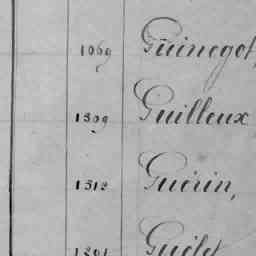 1069 Guinegot,
1309 Guilleux
1312 Guérin,
1301 Guélet